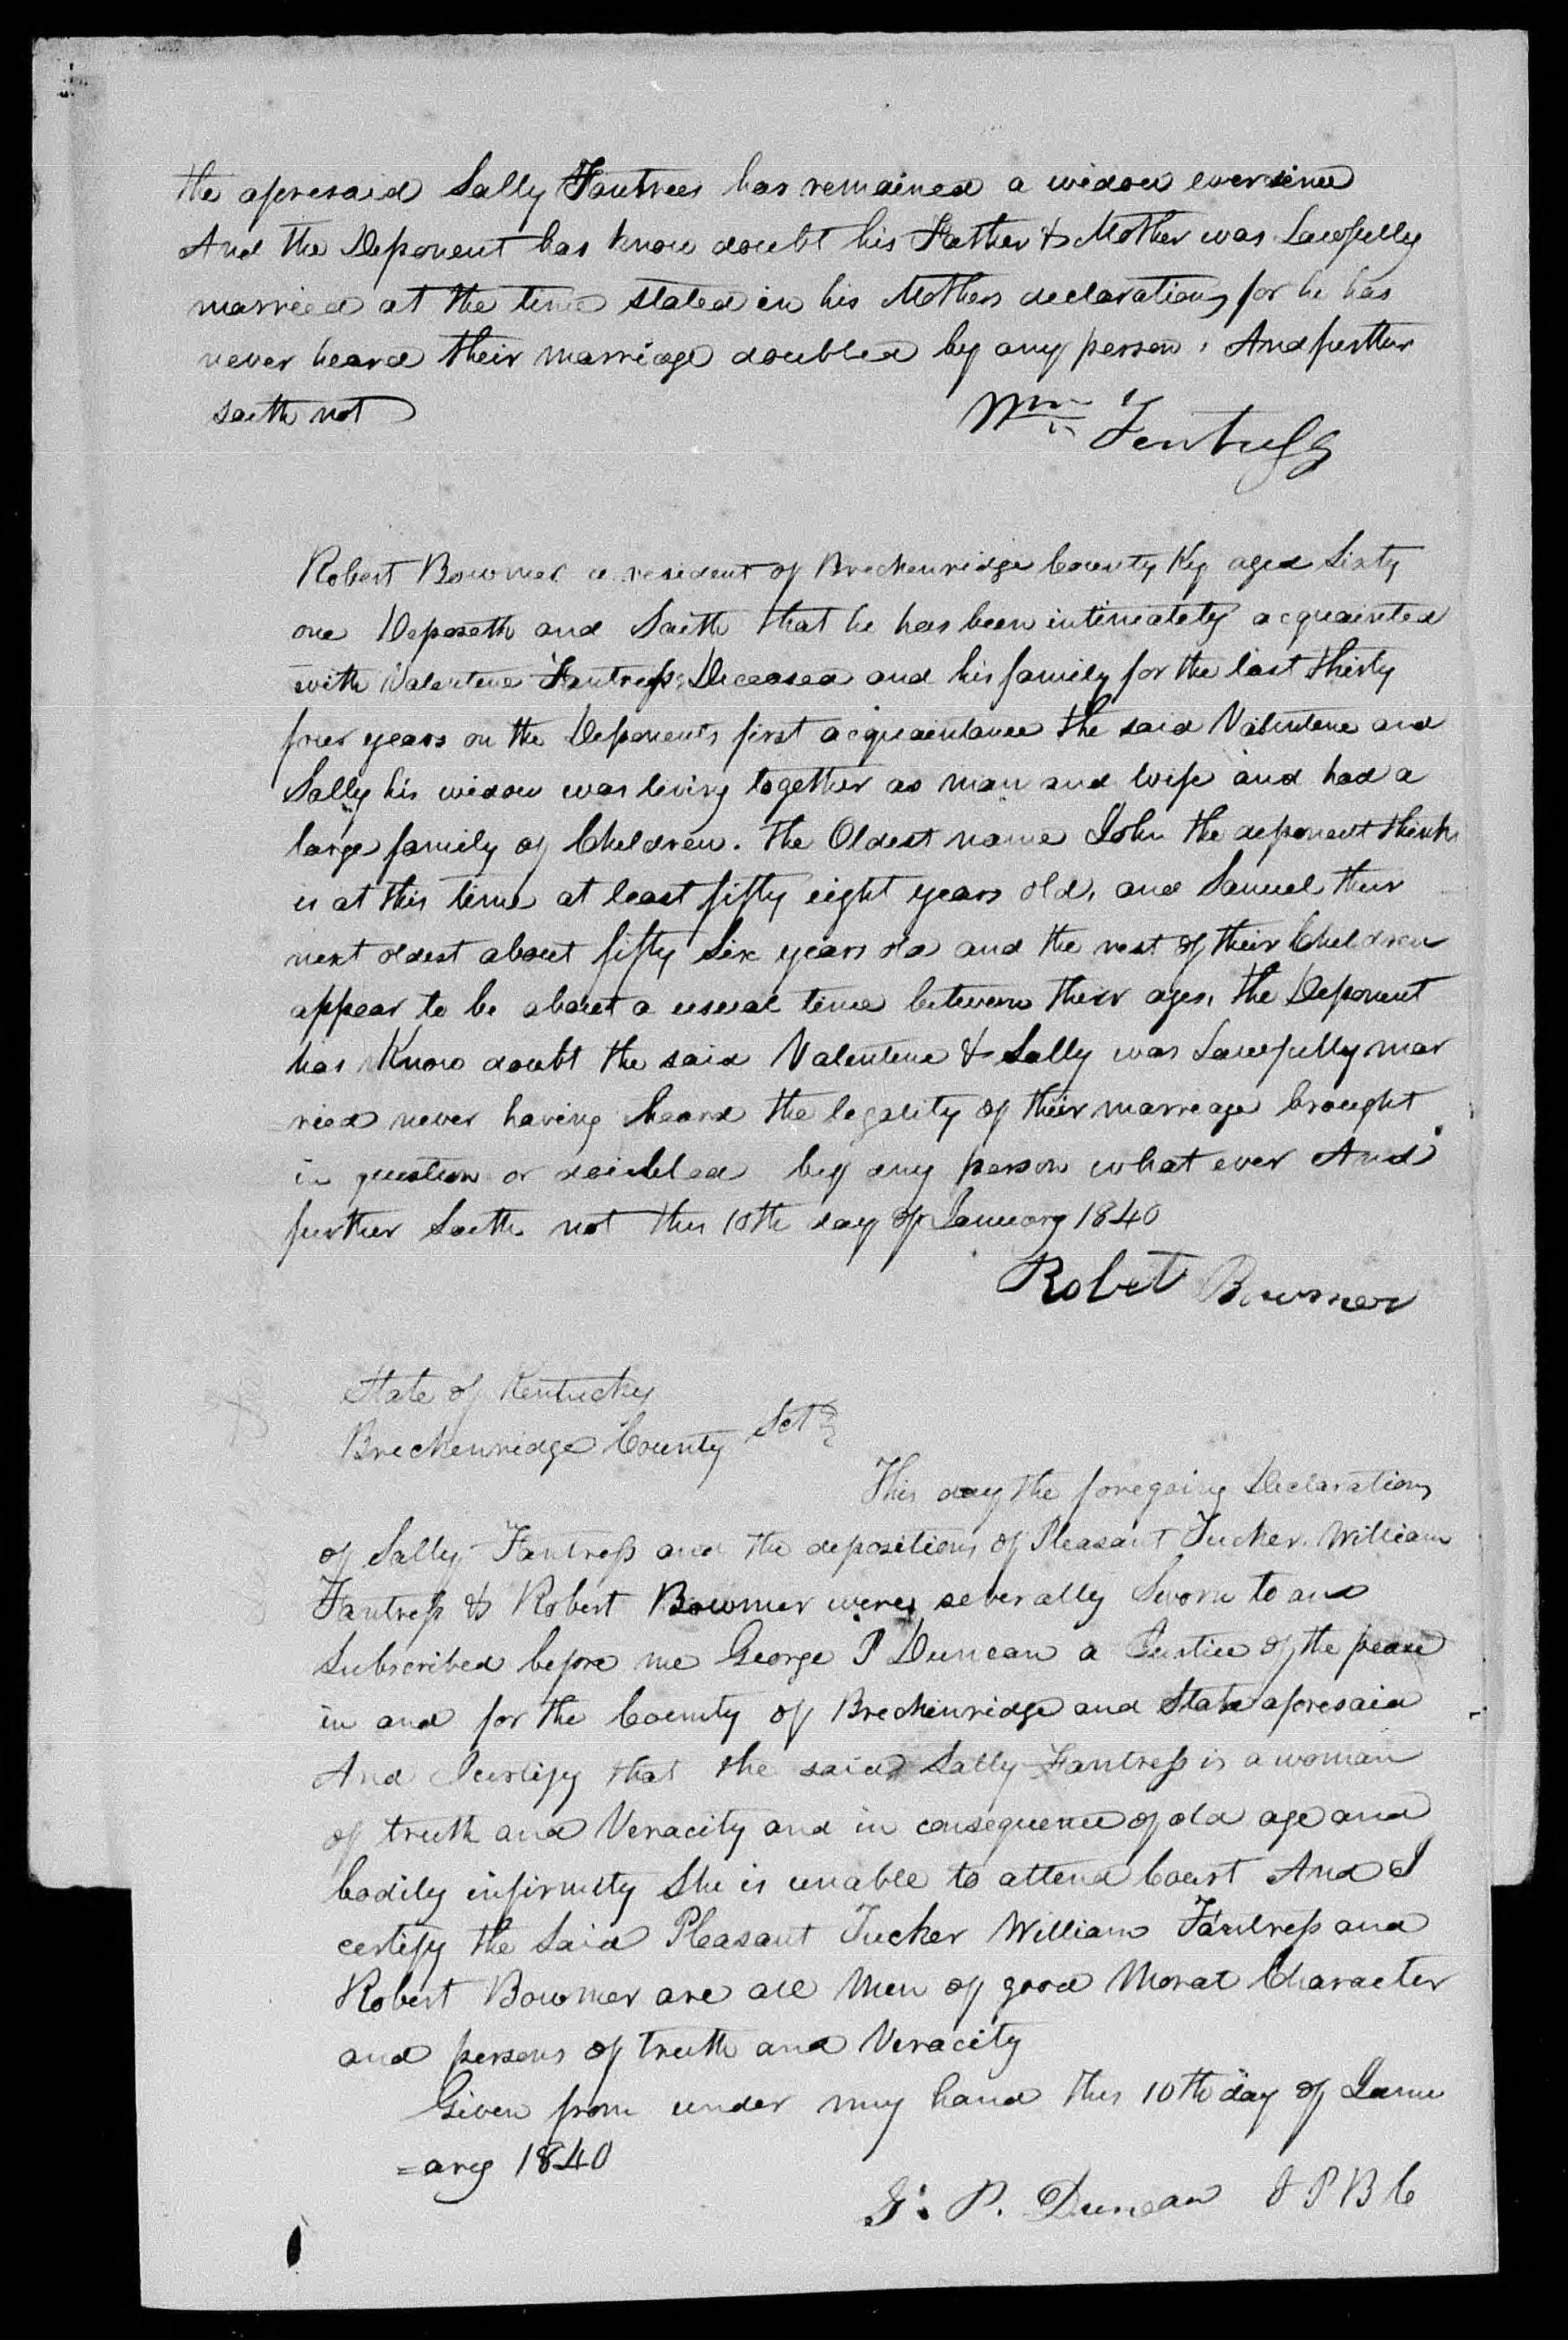 the aforesaid Sally Fantrees has remained a widow ever since
And the Deponent has know doubt his Father & Mother was Lawfully
married at the time stated in his Mothers declaration, for he has
never heard their marriage doubted by any person. And further
saith not
Wm Fentress
Robert Bowmer a resident of Breckenridge County Ky aged Sixty
one Deposeth and Saith that he has been intimately acquainted
with Valentene Fantress Deceased and his family for the last thirty
four years on the Deponents first acquaintance the said Valentene and
Sally his widow was living together as man and wife and had a
large family of Children. the Oldest name John the deponent thinks
is at this time at least fifty eight years old, and Samuel their
next oldest about fifty Six years old and the rest of their Children
appear to be about a usual time between their ages, the Deponent
has Know doubt the said Valentene & Sally was Lawfully mar
ried never having heard the legality of their marriage brought
in question or doubted by any person what ever And
further Saith not this 10th day of January 1840
Robert Bowmer
State of Kentucky
Breckenridge County Sct
This day the foregoing Declaration
of Sally Fantress and the depositions of Pleasant Tucker. William
Fantress & Robert Bowmer were severally Sworn to and
Subscribed before me George P Duncan a Justice of the peace
in and for the County of Breckenridge and State aforesaid
And I certify that the said Sally Fantress is a woman
of truth and Veracity and in consequence of old age and
bodily infirmity She is unable to attend Court And I
certify the Said Pleasant Tucker William Fantress and
Robert Bowmer are all Men of good Moral Character
and persons of truth and Veracity
Given from under my hand this 10th day of Janu
=ary 1840
G. P. Duncan J P B C